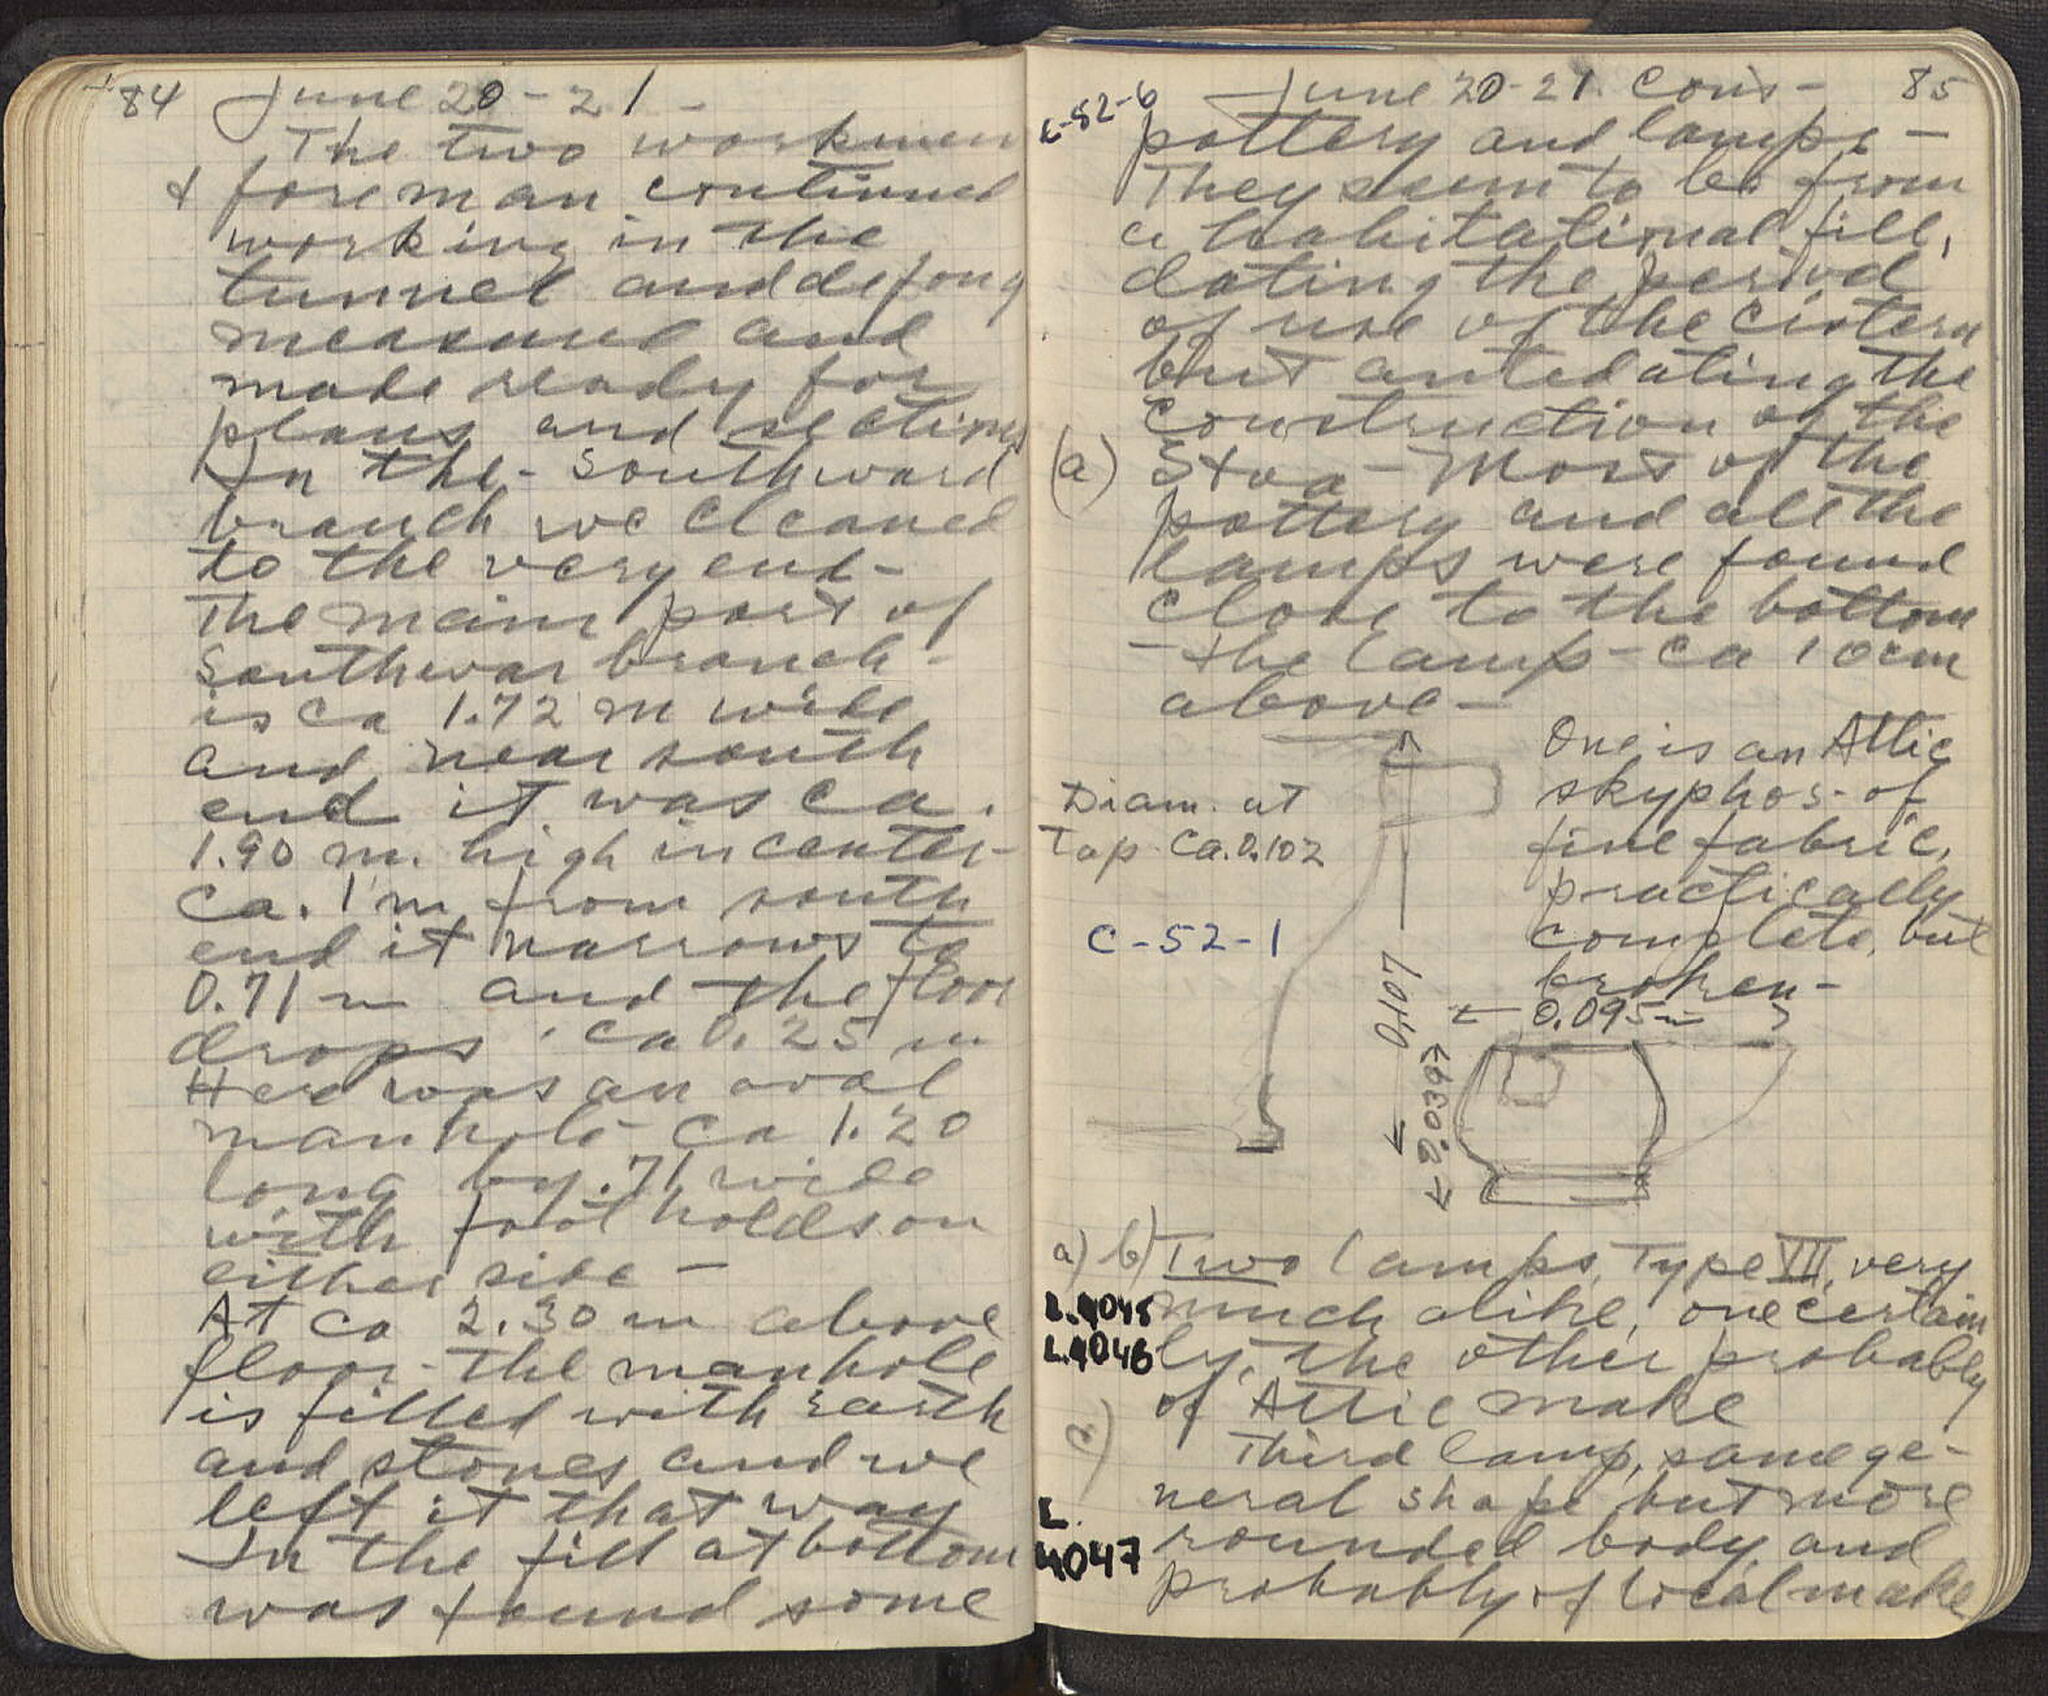 84 June 20-21 -
The two workmen
& foreman continued
working in the
tunnel and deJong
measured and
made ready for
plans and sections
In the - southward
branch we cleaned
to the very end -
The main part of
southwar branch -
is ca 1.72 m wide
and near south
end it was ca.
1.90 m. high in center -
ca. 1 m from south
end it narrows to
0.71 m and the floor
drops ca 0.25 m
Here was an oval
manhole ca 1.20
long by .71 wide
with foot holds on
either side -
At ca 2.30 m above
floor - the manhole
is filled with earth
and stones and we
left it that way
In the fill at bottom
was found some
June 20-21. Cons - 85
-52-6
pottery and lamps -
They seem to be from
a habitational fill,
dating the period
of use of the cistern
but antedating the
construction of the
(a) Stoa - Most of the
pottery and all the
lamps were found
close to the bottom
- the lamp - ca 10cm
above -
One is an Attic
skyphos - of
fine fabric,
practically
complete, but
broken -
Diam. at
Top ca. 0.102
C-52-1
0,107
← 0.095m
← 0.039 →
a) b) Two lamps, Type VII, very
L.4045 much alike, one certain
L.4046 ly, the other probably
of Attic make
c) Third lamp, same ge-
neral shape but more
L. rounded body and
4047 probably of local make